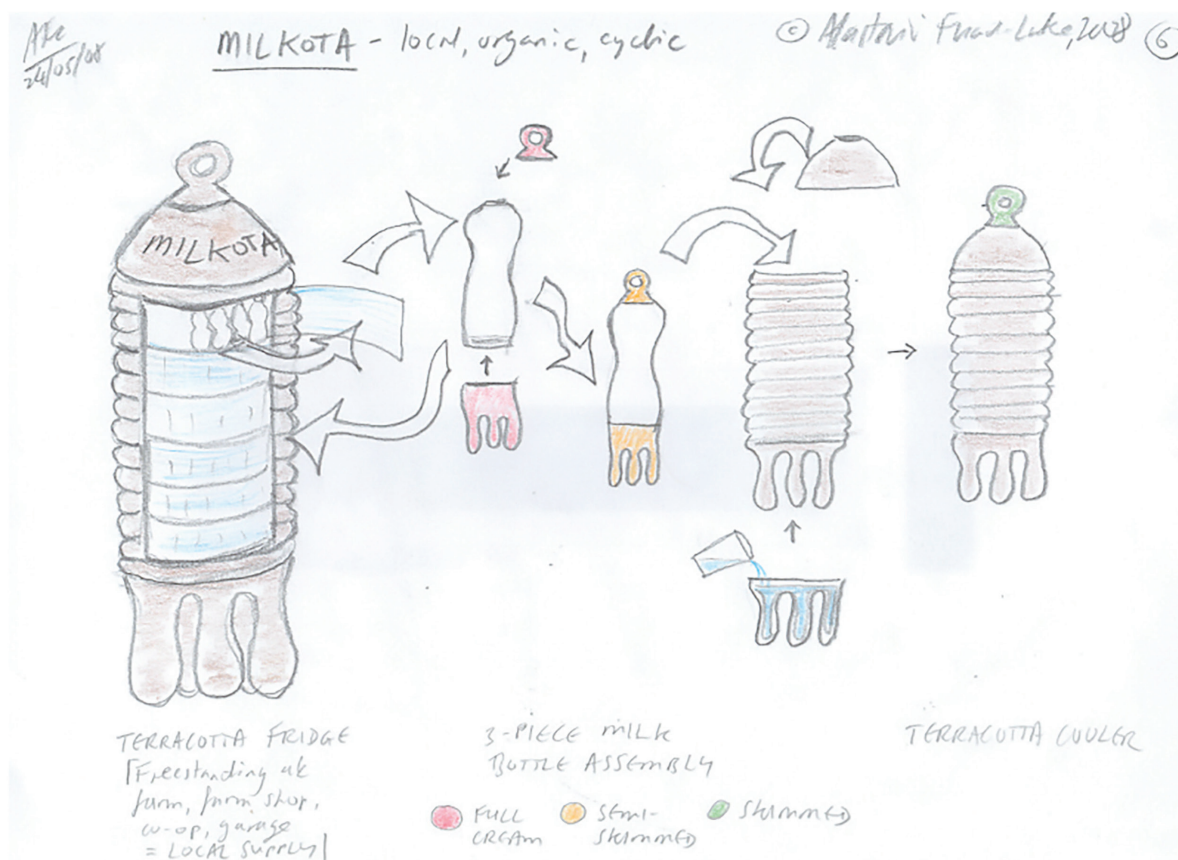 24/05/08
MILKOTA - local, organic, cyclic
© Alastair Fuad-Luke, 2008 6
MILKOTA
TERRACOTTA FRIDGE
[Freestanding at
farm, farm shop,
co-op, garage
= LOCAL SUPPLY]
3-PIECE MILK
BOTTLE ASSEMBLY
FULL
CREAM
SEMI-
SKIMMED
SKIMMED
TERRACOTTA COOLER